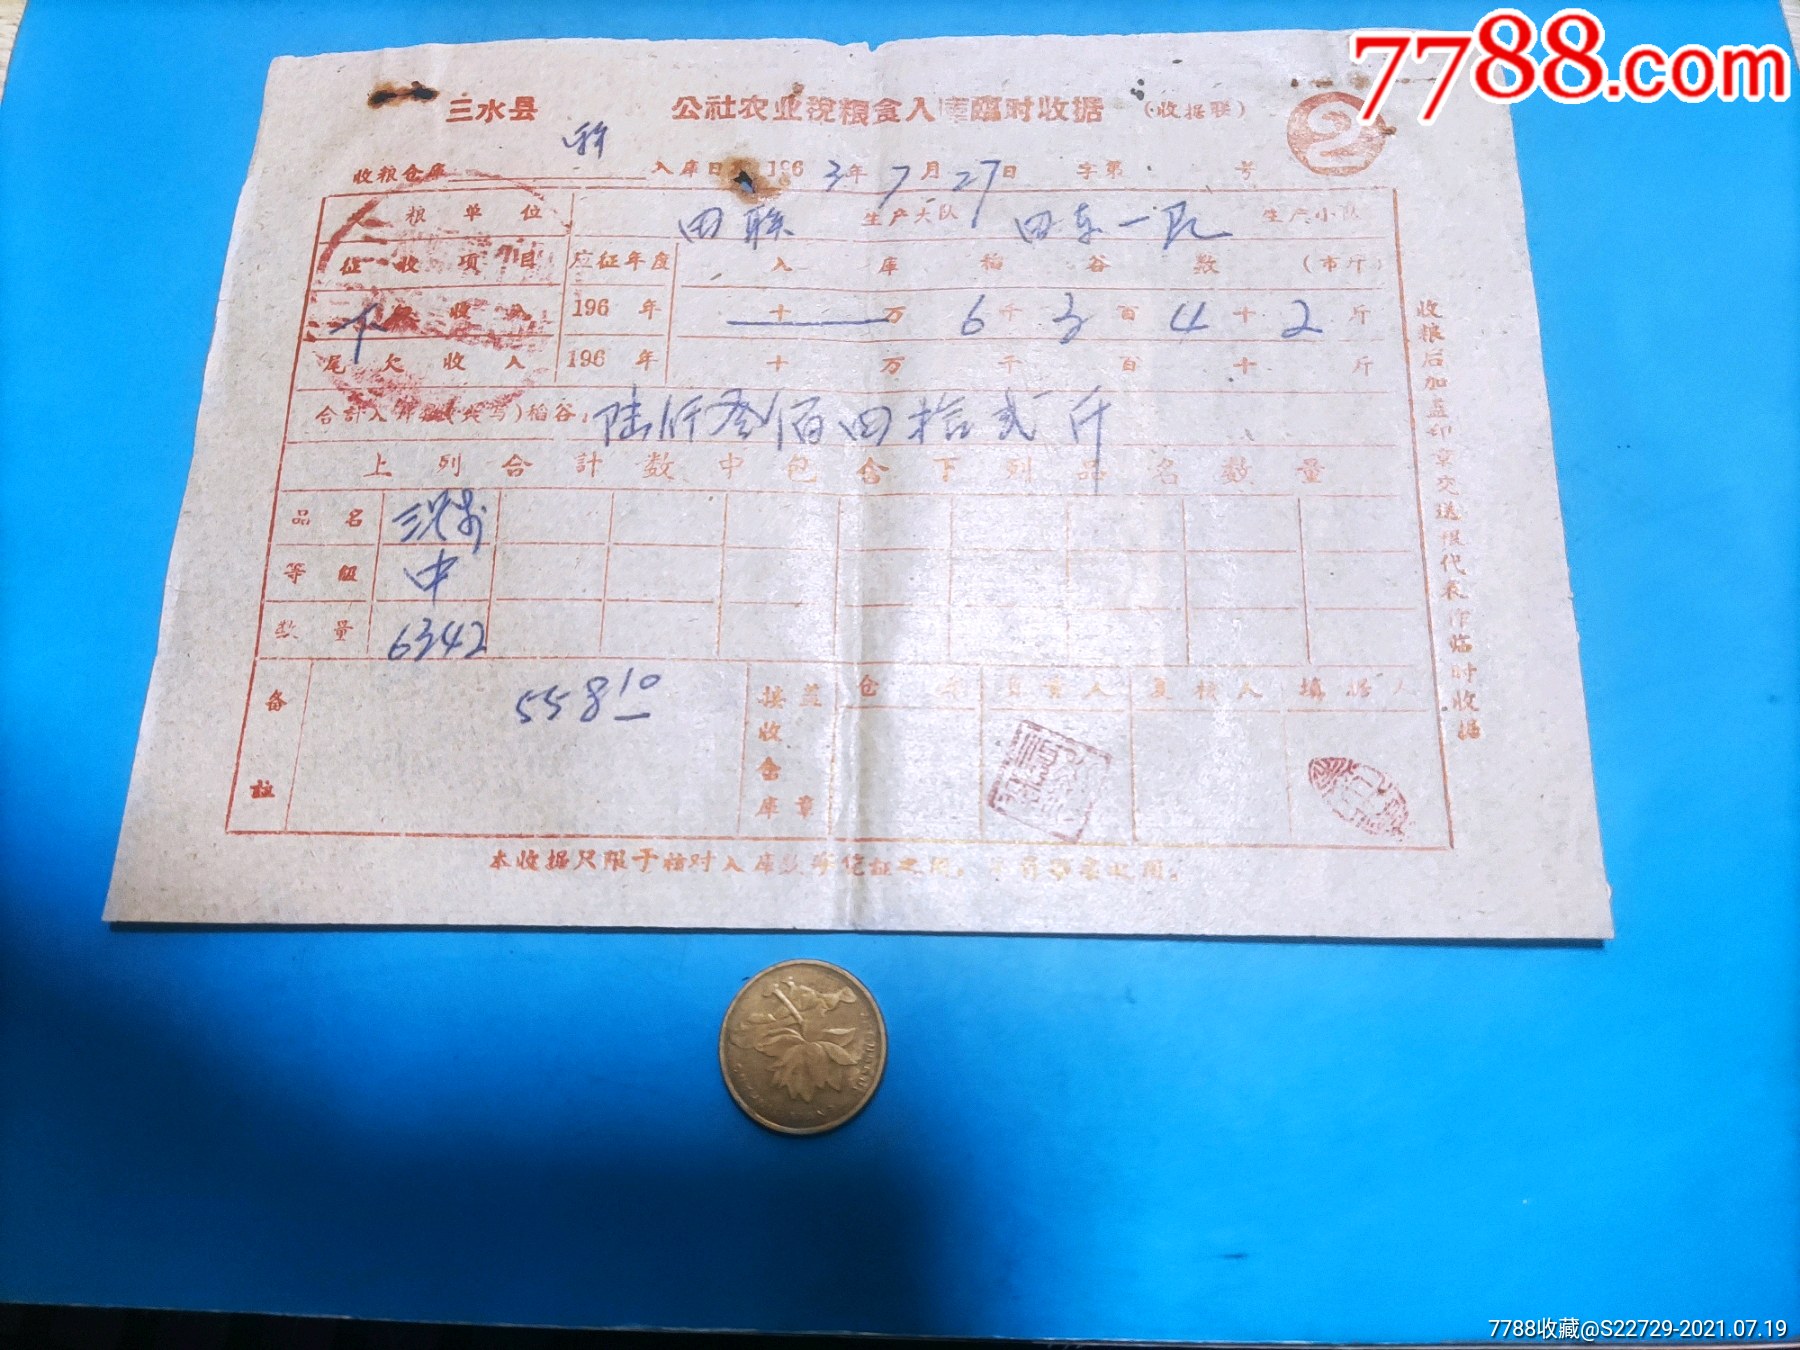 7788.com
三水县 公社农业税粮食入库临时收据 (收据联) ②
收粮仓库 入库日 1963年7月27日 字第 号
粮单位 田联 生产大队 田东一队 生产小队
征收项目 应征年度 入库稻谷数 (市斤)
收入 196 年 十万6千3百4十2斤
尾欠收入 196 年 十万千百十斤
合計入库数(大写)稻谷: 陆仟叁佰四拾弍斤
上列合計数中包含下列品名数量
品名
等級 中
数量 6342
备註 558 10
接收仓库盖章 仓库 負責人 复核人 填据人
收粮后加盖印章交送粮代表作临时收据
本收据只限于核对入库数字凭证之用,
7788收藏@S22729-2021.07.19